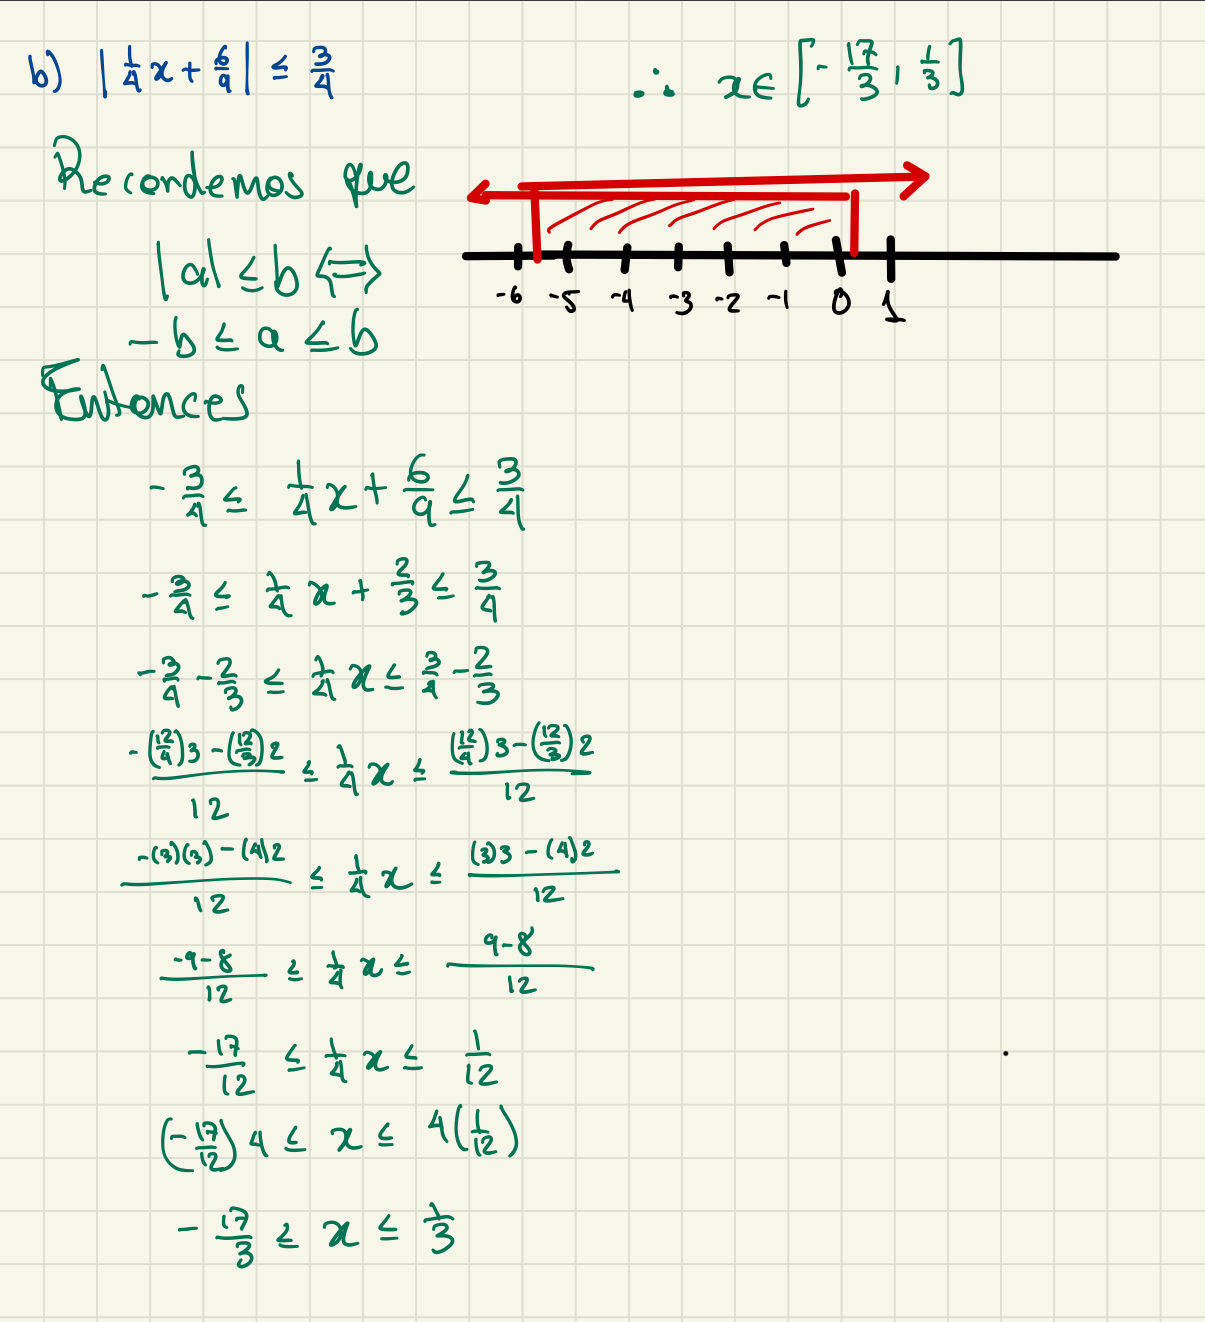 b) | 1/4 x + 6/9 | ≤ 3/4
∴ x ∈ [ - 17/3 , 1/3 ]
Recordemos que
|a| ≤ b ⟺
- b ≤ a ≤ b
-6 -5 -4 -3 -2 -1 0 1
Entonces
- 3/4 ≤ 1/4 x + 6/9 ≤ 3/4
- 3/4 ≤ 1/4 x + 2/3 ≤ 3/4
- 3/4 - 2/3 ≤ 1/4 x ≤ 3/4 - 2/3
(-(12/4)3 - (12/3)2)/12 ≤ 1/4 x ≤ ((12/4)3 - (12/3)2)/12
(-(3)(3) - (4)2)/12 ≤ 1/4 x ≤ ((3)3 - (4)2)/12
(-9-8)/12 ≤ 1/4 x ≤ (9-8)/12
- 17/12 ≤ 1/4 x ≤ 1/12
(- 17/12) 4 ≤ x ≤ 4 (1/12)
- 17/3 ≤ x ≤ 1/3